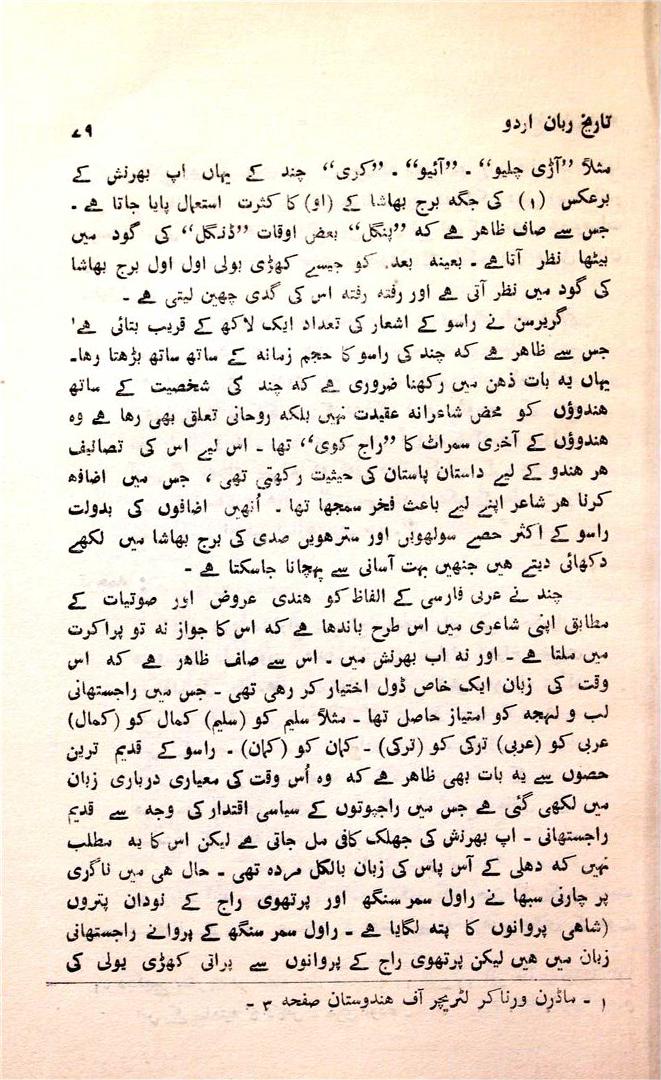 تاریخ زبان اردو
۷۹
مثلاً ”آڑی چلیو“ ۔ ”آئیو“ ۔ ”کری“ چند کے یہاں اپ بھرنش کے
برعکس (۱) کی جگہ برج بھاشا کے (او) کا کثرت استعمال پایا جاتا ہے ۔
جس سے صاف ظاہر ہے کہ ”پنگل“ بعض اوقات ”ڈنگل“ کی گود میں
بیٹھا نظر آتا ہے ۔ بعینہ بعد کو جیسے کھڑی بولی اول اول برج بھاشا
کی گود میں نظر آتی ہے اور رفتہ رفتہ اس کی گدی چھین لیتی ہے ۔
گریرسن نے راسو کے اشعار کی تعداد ایک لاکھ کے قریب بتائی ہے'
جس سے ظاہر ہے کہ چند کی راسو کا حجم زمانہ کے ساتھ ساتھ بڑھتا رہا۔
یہاں یہ بات ذہن میں رکھنا ضروری ہے کہ چند کی شخصیت کے ساتھ
ہندوؤں کو محض شاعرانہ عقیدت نہیں بلکہ روحانی تعلق بھی رہا ہے وہ
ہندوؤں کے آخری سمراٹ کا ”راج کوی“ تھا ۔ اس لیے اس کی تصانیف
ہر ہندو کے لیے داستان پاستان کی حیثیت رکھتی تھی ، جس میں اضافہ
کرنا ہر شاعر اپنے لیے باعث فخر سمجھا تھا ۔ اُنھیں اضافوں کی بدولت
راسو کے اکثر حصے سولھویں اور سترھویں صدی کی برج بھاشا میں لکھے
دکھائی دیتے ہیں جنھیں بہت آسانی سے پہچانا جاسکتا ہے ۔
چند نے عربی فارسی کے الفاظ کو ہندی عروض اور صوتیات کے
مطابق اپنی شاعری میں اس طرح باندھا ہے کہ اس کا جواز نہ تو پراکرت
میں ملتا ہے ۔ اور نہ اب بھرنش میں ۔ اس سے صاف ظاہر ہے کہ اس
وقت کی زبان ایک خاص ڈول اختیار کر رہی تھی ۔ جس میں راجستھانی
لب و لہجہ کو امتیاز حاصل تھا ۔ مثلاً سلیم کو (سلیم) کمال کو (کمال)
عربی کو (عربی) ترکی کو (ترکی) ۔ کمان کو (کمان) ۔ راسو کے قدیم ترین
حصوں سے یہ بات بھی ظاہر ہے کہ وہ اُس وقت کی معیاری درباری زبان
میں لکھی گئی ہے جس میں راجپوتوں کے سیاسی اقتدار کی وجہ سے قدیم
راجستھانی ۔ اپ بھرنش کی جھلک کافی مل جاتی ہے لیکن اس کا یہ مطلب
نہیں کہ دھلی کے آس پاس کی زبان بالکل مردہ تھی ۔ حال ہی میں ناگری
پر چارنی سبھا نے راول سمر سنگھ اور پرتھوی راج کے نودان پتروں
(شاہی پروانوں کا پتہ لگایا ہے ۔ راول سمر سنگھ کے پروانے راجستھانی
زبان میں ہیں لیکن پرتھوی راج کے پروانوں سے پرانی کھڑی بولی کی
۱ ۔ ماڈرن ورناکر لٹریچر آف ہندوستان صفحہ ۳ ۔